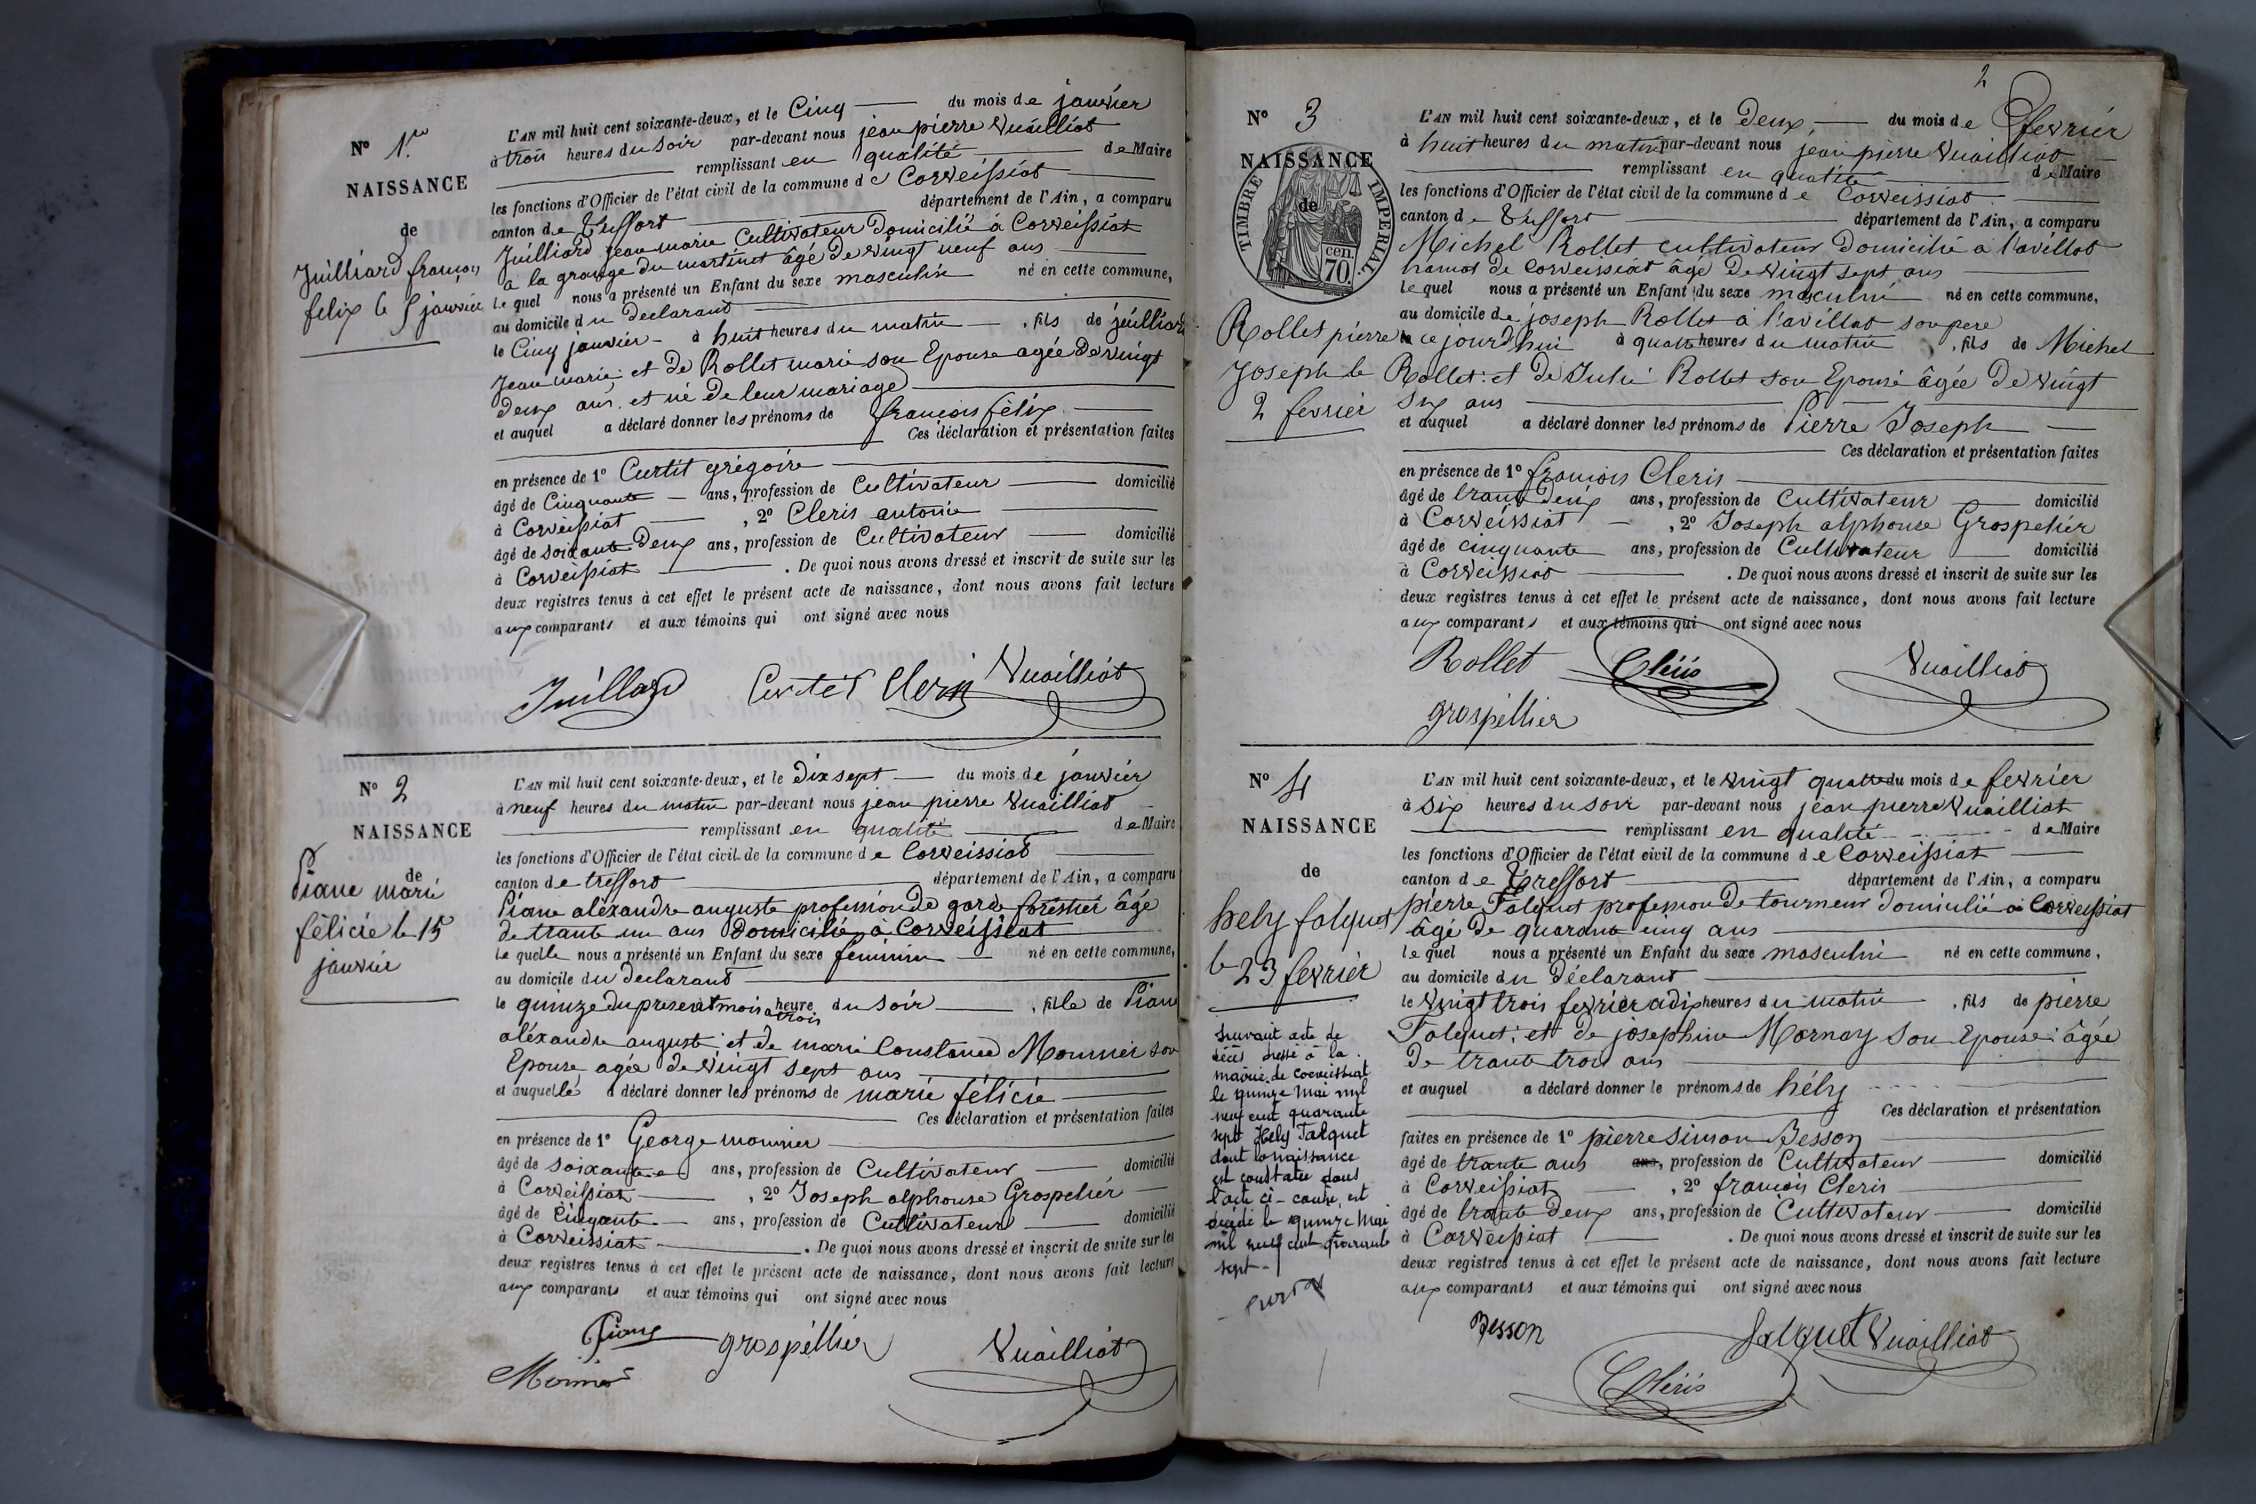 N° 1er
NAISSANCE
de
Juilliard françois
felix le 5 janvier
L'AN mil huit cent soixante-deux, et le Cinq du mois de janvier
à trois heures du soir par-devant nous jean pierre Vuailliat
remplissant en qualité de Maire
les fonctions d'Officier de l'état civil de la commune de Corveissiat
canton de Treffort département de l'Ain, a comparu
Juilliard jean marie Cultivateur Domicilié à Corveissiat
a la grange du martinet âgé De vingt neuf ans
Le quel nous a présenté un Enfant du sexe masculin né en cette commune,
au domicile du Declarant
le Cinq janvier à huit heures du matin, fils de juilliard
Jean marie; et de Rollet marie son Epouse agée De vingt
Deux ans et né De leur mariage
et auquel a déclaré donner les prénoms de françois félix
Ces déclaration et présentation faites
en présence de 1° Curtit grégoire
âgé de Cinquante ans, profession de Cultivateur domicilié
à Corveissiat, 2° Cleris antoine
âgé de soixante Deux ans, profession de Cultivateur domicilié
à Corveissiat. De quoi nous avons dressé et inscrit de suite sur les
deux registres tenus à cet effet le présent acte de naissance, dont nous avons fait lecture
aux comparants et aux témoins qui ont signé avec nous
Juillard Curtit Cleris Vuailliat
N° 2
NAISSANCE
de
Piane marie
félicie le 15
janvier
L'AN mil huit cent soixante-deux, et le Dix sept du mois de janvier
à neuf heures du matin par-devant nous jean pierre Vuailliat
remplissant en qualité de Maire
les fonctions d'Officier de l'état civil de la commune de Corveissiat
canton de treffort département de l'Ain, a comparu
Piane aléxandre auguste profession De garde forestier âgé
de trante un ans domicilié à Corveissiat
Le quelle nous a présenté un Enfant du sexe féminin né en cette commune,
au domicile du Declarant
le quinze du present mois a trois heure du soir, fille de Piane
aléxandre auguste et de marie Constance Mounier son
Epouse agée de vingt sept ans
et auquelle a déclaré donner les prénoms de marie félicie
Ces déclaration et présentation faites
en présence de 1° George mounier
âgé de soixante ans, profession de Cultivateur domicilié
à Corveissiat, 2° Joseph alphonse Grospelier
âgé de Cinqante ans, profession de Cultivateur domicilié
à Corveissiat. De quoi nous avons dressé et inscrit de suite sur les
deux registres tenus à cet effet le présent acte de naissance, dont nous avons fait lecture
aux comparants et aux témoins qui ont signé avec nous
Piane grospéllier Vuailliat
2
N° 3
NAISSANCE
de
TIMBRE IMPERIAL
70 cen.
Rollet pierre
Joseph le
2 fevrier
L'AN mil huit cent soixante-deux, et le Deux, du mois de fevrier
à huit heures du matin par-devant nous jean pierre Vuailliat
remplissant en qualité de Maire
les fonctions d'Officier de l'état civil de la commune de Corveissiat
canton de Treffort département de l'Ain, a comparu
Michel Rollet cultivateur Domicilié a l'avillat
hamot de Corveissiat âgé De vingt sept ans
Le quel nous a présenté un Enfant du sexe masculin né en cette commune,
au domicile de joseph Rollet a l'avillat son pere
ce jourd'hui à quatre heures du matin, fils de Michel
Rollet: et De Julie Rollet son Epouse âgée De vingt
Six ans
et auquel a déclaré donner les prénoms de Pierre Joseph
Ces déclaration et présentation faites
en présence de 1° françois Cleris
âgé de trante Deux ans, profession de Cultivateur domicilié
à Corveissiat, 2° Joseph alphonse Grospelier
âgé de cinquante ans, profession de Cultivateur domicilié
à Corveissiat. De quoi nous avons dressé et inscrit de suite sur les
deux registres tenus à cet effet le présent acte de naissance, dont nous avons fait lecture
aux comparants et aux témoins qui ont signé avec nous
Rollet Cléris Vuailliat
grospéllier
N° 4
NAISSANCE
de
hely falquet
le 23 fevrier
Suivant acte de
décès dressé à la
mairie de Corveissiat
le quinze Mai mil
neuf cent quarante
sept Hely Falquet
dont la naissance
est constatée dans
l'acte ci-contre, est
décédé le quinze Mai
mil neuf cent quarante
sept-
L'AN mil huit cent soixante-deux, et le vingt quatre du mois de fevrier
à Six heures du soir par-devant nous jean pierre Vuailliat
remplissant en qualité de Maire
les fonctions d'Officier de l'état civil de la commune de Corveissiat
canton de Treffort département de l'Ain, a comparu
pierre Falquet profession De tourneur domicilié à Corveissiat
âgé De quarante cinq ans
Le quel nous a présenté un Enfant du sexe masculin né en cette commune,
au domicile du Déclarant
le vingt trois fevrier a dix heures du matin, fils de pierre
Falquet; et de josephine Mornay son Epouse: âgée
De trante trois ans
et auquel a déclaré donner le prénoms de hély
Ces déclaration et présentation
faites en présence de 1° pierre simon Besson
âgé de trante ans ans, profession de Cultivateur domicilié
à Corveissiat, 2° françois Cleris
âgé de trante Deux ans, profession de Cultivateur domicilié
à Corveissiat. De quoi nous avons dressé et inscrit de suite sur les
deux registres tenus à cet effet le présent acte de naissance, dont nous avons fait lecture
aux comparants et aux témoins qui ont signé avec nous
Besson falquet Vuailliat
Cléris